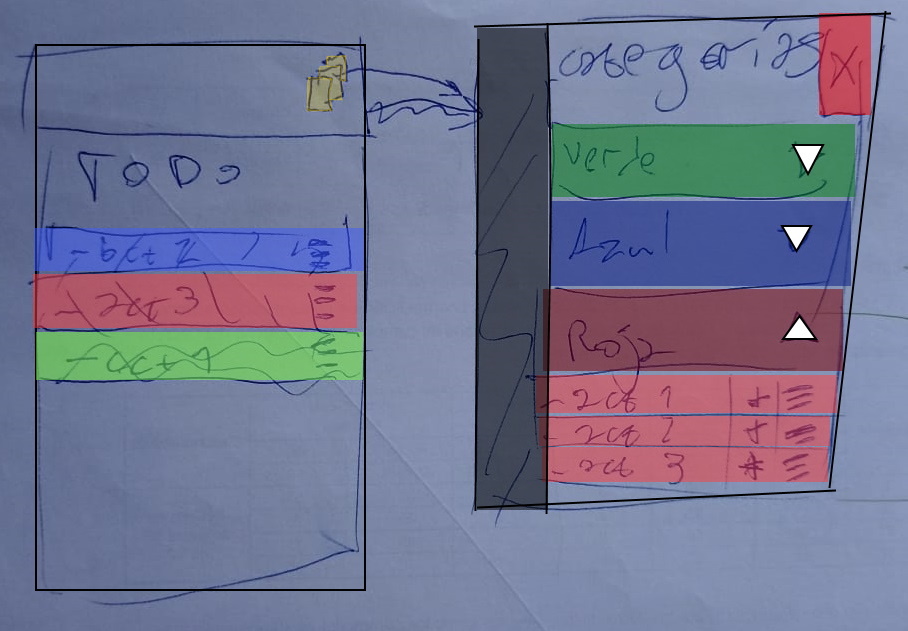 TODO
- act 2
- act 3
- act 1
categorías X
Verde
Azul
Rojo
- act 1 +
- act 2 +
- act 3 +